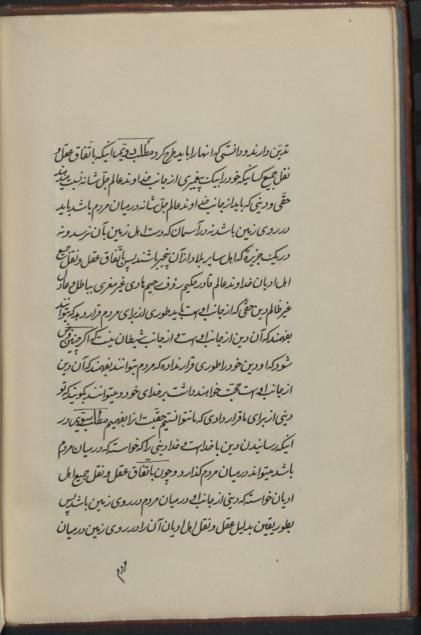 تدین دارند و دانستی که آنها را باید طرح کرد مطلب دویم اینکه باتفاق عقل و
نقل جمیع کسانیکه خود را بیک پیغمبری از جانب خداوند عالم جل شانه نسبت میدهند
حقی و دینی که باید از جانب خداوند عالم جل شانه در میان مردم باشد باید
در روی زمین باشد نه در آسمان که دست اهل زمین بآن نرسد و نه
در یک جزیرهٔ که اهل سایر بلاد از آن بیخبر باشند پس باتفاق عقل و نقل جمیع
اهل ادیان خداوند عالم قادر حکیم رؤف رحیم هادی غیر مغری بباطل و عادل
غیر ظالم دین حقی که از جانب اوست باید طوری از برای مردم قرار دهد که بتوانند
بفهمند که آن دین از جانب اوست و از جانب شیطان نیست که اگر چنین فرض
شود که او دین خود را طوری قرار نداده که مردم بتوانند بفهمند که آن دین
از جانب اوست حجت خواهند داشت بر خدای خود و میتوانند بگویند که تو
دینی از برای ما قرار دادی که ما نتوانستیم حقیت آنرا بفهمیم مطلب سیم در
اینکه رساندن دین با خداست و خدا دینی را که خواسته که در میان مردم
باشد میتواند در میان مردم گذارد و چون باتفاق عقل و نقل جمیع اهل
ادیان خواسته که دینی از جانب او در میان مردم در روی زمین باشد پس
بطور یقین بدلیل عقل و نقل اهل ادیان آن را در روی زمین در میان